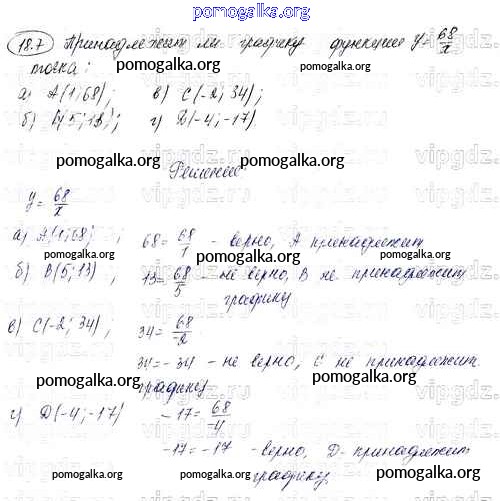 pomogalka.org
18.7 Принадлежит ли графику функции y = 68/x
точка:
а) A(1; 68); в) C(-2; 34);
б) B(5; 13); г) D(-4; -17)
pomogalka.org pomogalka.org pomogalka.org
Решение
y = 68/x
а) A(1; 68; ; 68 = 68/1 - верно, A принадлежит
б) B(5; 13) , 13 = 68/5 - не верно, B не принадлежит
графику
pomogalka.org pomogalka.org pomogalka.org
в) C(-2; 34), 34 = 68/-2
34 = -34 - не верно, C не принадлежит
графику
pomogalka.org pomogalka.org pomogalka.org
г) D(-4; -17) -17 = 68/-4
-17 = -17 - верно, D - принадлежит
графику
pomogalka.org pomogalka.org pomogalka.org